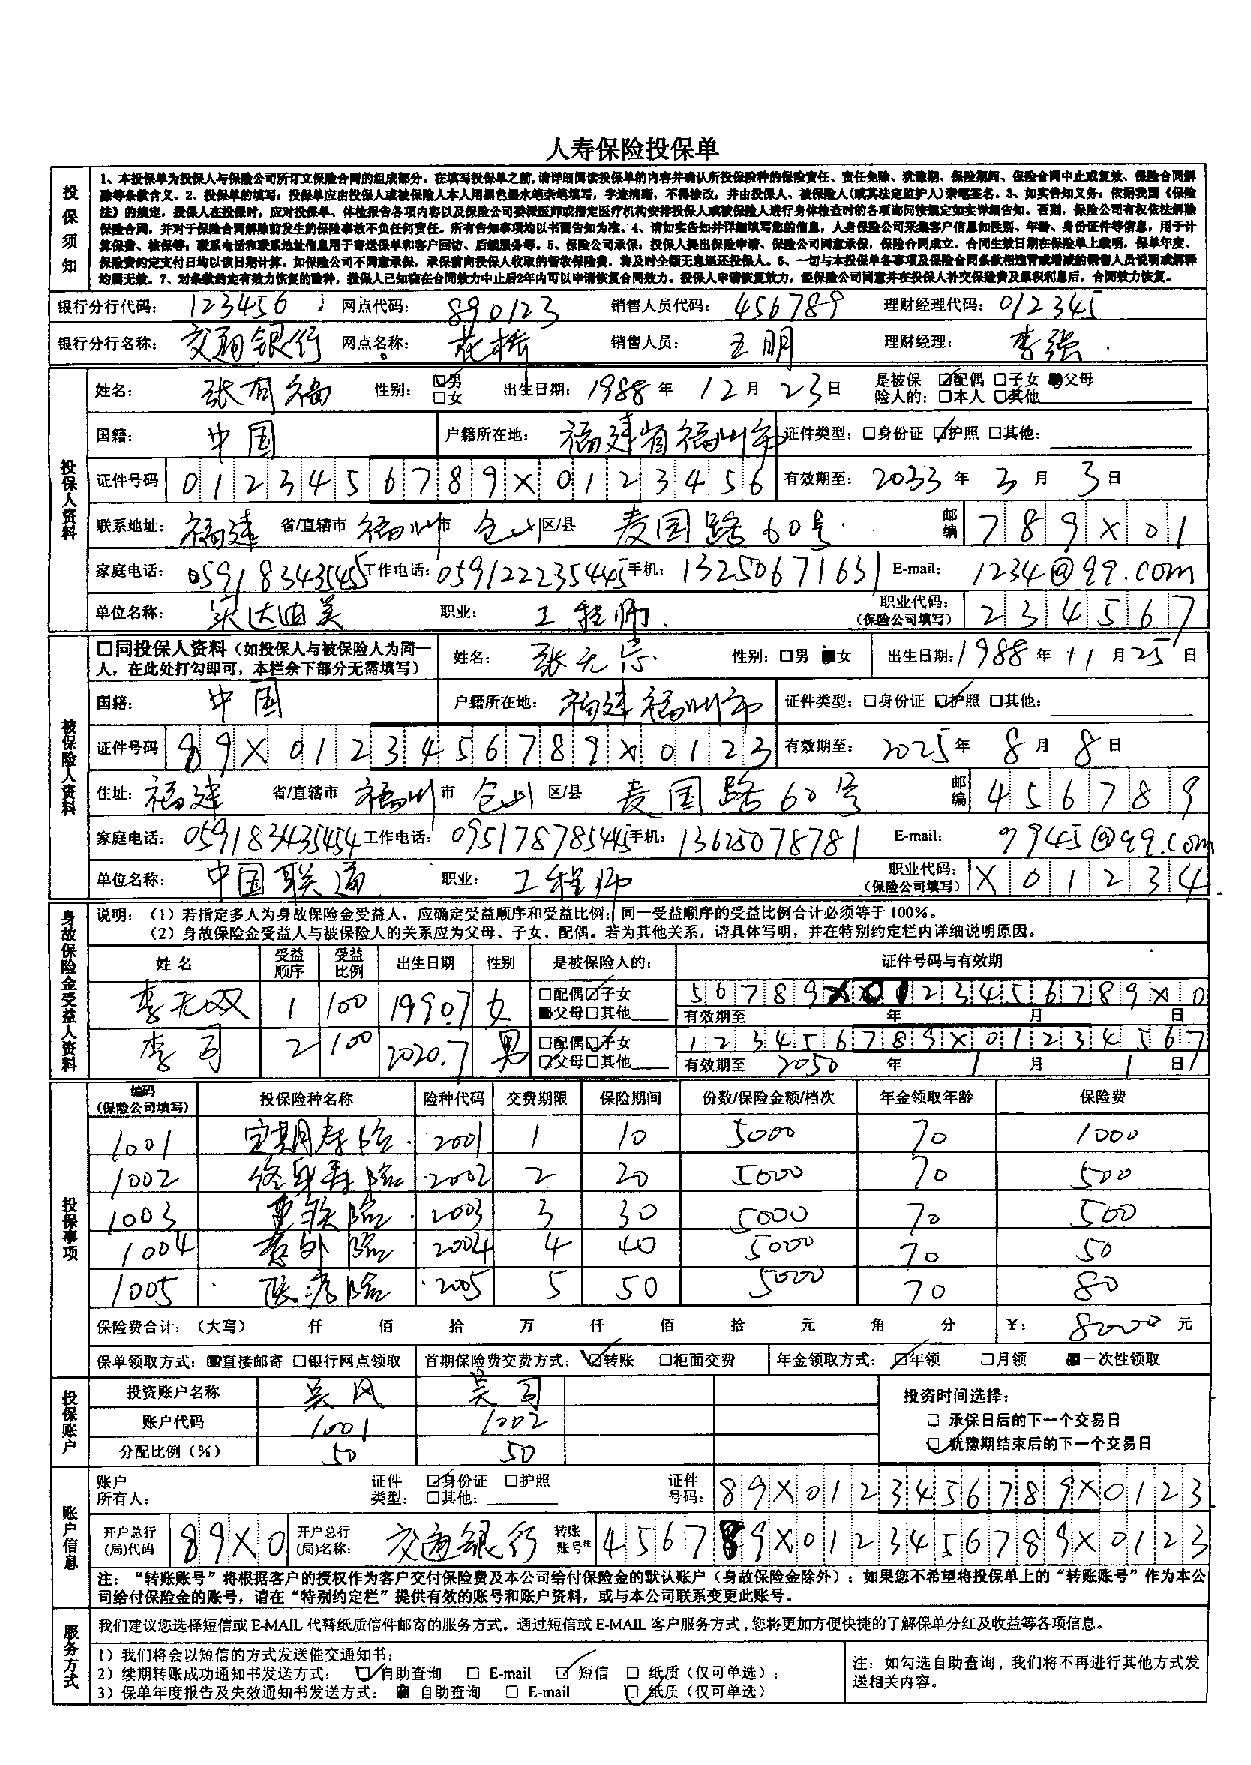 人寿保险投保单
投保须知
1、本投保单为投保人与保险公司所订立保险合同的组成部分。在填写投保单之前,请详细阅读投保单的内容并确认所投保险种的保险责任、责任免除、犹豫期、保险期间、保险合同中止或复效、保险合同解
除等条款含义。2、投保单的填写:投保单应由投保人或被保险人本人用黑色墨水笔亲笔填写,字迹清晰,不得涂改,并由投保人、被保险人(或其法定监护人)亲笔签名。3、如实告知义务:依据我国《保险
法》的规定,投保人在投保时,应对投保单、体检报告各项内容以及保险公司委派医师或指定医疗机构安排投保人或被保险人进行身体检查时的各项询问按规定如实详细告知。否则,保险公司有权依法解除
保险合同,并对于保险合同解除前发生的保险事故不负任何责任。所有告知事项均以书面告知为准。4、请如实告知并详细填写您的信息,人身保险公司采集客户信息如性别、年龄、身份证件等信息,用于计
算保费、核保等;联系电话和联系地址信息用于寄送保单和客户回访、后续服务等。5、保险公司承保:投保人提出保险申请、保险公司同意承保,保险合同成立。合同生效日期在保险单上载明,保单年度、
保险费约定支付日均以该日期计算。如保险公司不同意承保,承保前向投保人收取的暂收保险费,将及时全额无息退还投保人。6、一切与本投保单各事项及保险合同条款相违背或增减的销售人员说明或解释
均属无效。7、对条款约定有效力恢复的险种,投保人已知晓在合同效力中止后2年内可以申请恢复合同效力。投保人申请恢复效力,经保险公司同意并在投保人补交保险费及累积利息后,合同效力恢复。
银行分行代码: 123456 网点代码: 890123 销售人员代码: 456789 理财经理代码: 012345
银行分行名称: 交通银行 网点名称: 花桥 销售人员: 王明 理财经理: 李强
投保人资料
姓名: 张有福 性别: ☑男 □女 出生日期: 1988年12月23日 是被保险人的: ☑配偶 □子女 ■父母 □本人 □其他
国籍: 中国 户籍所在地: 福建省福州市 证件类型: □身份证 ☑护照 □其他:
证件号码 0123456789X0123456 有效期至: 2033年3月3日
联系地址: 福建 省/直辖市 福州 市 仓山 区/县 麦园路60号 邮编 789X01
家庭电话: 059183435455 工作电话: 059122235445 手机: 13250671631 E-mail: 1234@qq.com
单位名称: 实达迪美 职业: 工程师 职业代码:(保险公司填写) 234567
被保险人资料
□同投保人资料(如投保人与被保险人为同一人,在此处打勾即可,本栏余下部分无需填写) 姓名: 张无宗 性别: □男 ■女 出生日期: 1988年11月25日
国籍: 中国 户籍所在地: 福建福州市 证件类型: □身份证 ☑护照 □其他:
证件号码 89X0123456789X0123 有效期至: 2025年8月8日
住址: 福建 省/直辖市 福州 市 仓山 区/县 麦园路60号 邮编 456789
家庭电话: 059183435454 工作电话: 095178785445 手机: 13625078781 E-mail: 7945@qq.com
单位名称: 中国联通 职业: 工程师 职业代码:(保险公司填写) X01234
身故保险金受益人资料
说明:(1)若指定多人为身故保险金受益人,应确定受益顺序和受益比例;同一受益顺序的受益比例合计必须等于100%。
(2)身故保险金受益人与被保险人的关系应为父母、子女、配偶。若为其他关系,请具体写明,并在特别约定栏内详细说明原因。
姓名 受益顺序 受益比例 出生日期 性别 是被保险人的: 证件号码与有效期
李无双 1 100 1990.7 女 □配偶☑子女 ■父母□其他 56789X0123456789X0
有效期至 年 月 日
李司 2 100 2020.7 男 □配偶☑子女 ☑父母□其他 123456789X01234567
有效期至 2050年1月1日
投保事项
编码(保险公司填写) 投保险种名称 险种代码 交费期限 保险期间 份数/保险金额/档次 年金领取年龄 保险费
1001 定期寿险 2001 1 10 5000 70 1000
1002 终身寿险 2002 2 20 5000 70 500
1003 重疾险 2003 3 30 5000 70 500
1004 意外险 2004 4 40 5000 70 50
1005 医疗险 2005 5 50 5000 70 80
保险费合计:(大写) 仟 佰 拾 万 仟 佰 拾 元 角 分 ¥: 80000 元
保单领取方式: ■直接邮寄 □银行网点领取 首期保险费交费方式: ☑转账 □柜面交费 年金领取方式: ☑年领 □月领 ■一次性领取
投保账户
投资账户名称 吴风 吴司 投资时间选择:
账户代码 1001 1002 □ 承保日后的下一个交易日
分配比例(%) 50 50 ☑ 犹豫期结束后的下一个交易日
账户信息
账户所有人: 证件类型: ☑身份证 □护照 □其他: 证件号码: 89X0123456789X0123
开户总行(局)代码 89X0 开户总行(局)名称: 交通银行 转账账号: 456789X0123456789X0123
注:“转账账号”将根据客户的授权作为客户交付保险费及本公司给付保险金的默认账户(身故保险金除外);如果您不希望将投保单上的“转账账号”作为本公
司给付保险金的账号,请在“特别约定栏”提供有效的账号和账户资料,或与本公司联系变更此账号。
服务方式
我们建议您选择短信或E-MAIL代替纸质信件邮寄的服务方式。通过短信或E-MAIL客户服务方式,您将更加方便快捷的了解保单分红及收益等各项信息。
1)我们将会以短信的方式发送催交通知书;
2)续期转账成功通知书发送方式: ☑自助查询 □ E-mail ☑ 短信 □ 纸质(仅可单选);
3)保单年度报告及失效通知书发送方式: ■ 自助查询 □ E-mail ☑ 纸质(仅可单选)
注:如勾选自助查询,我们将不再进行其他方式发送相关内容。